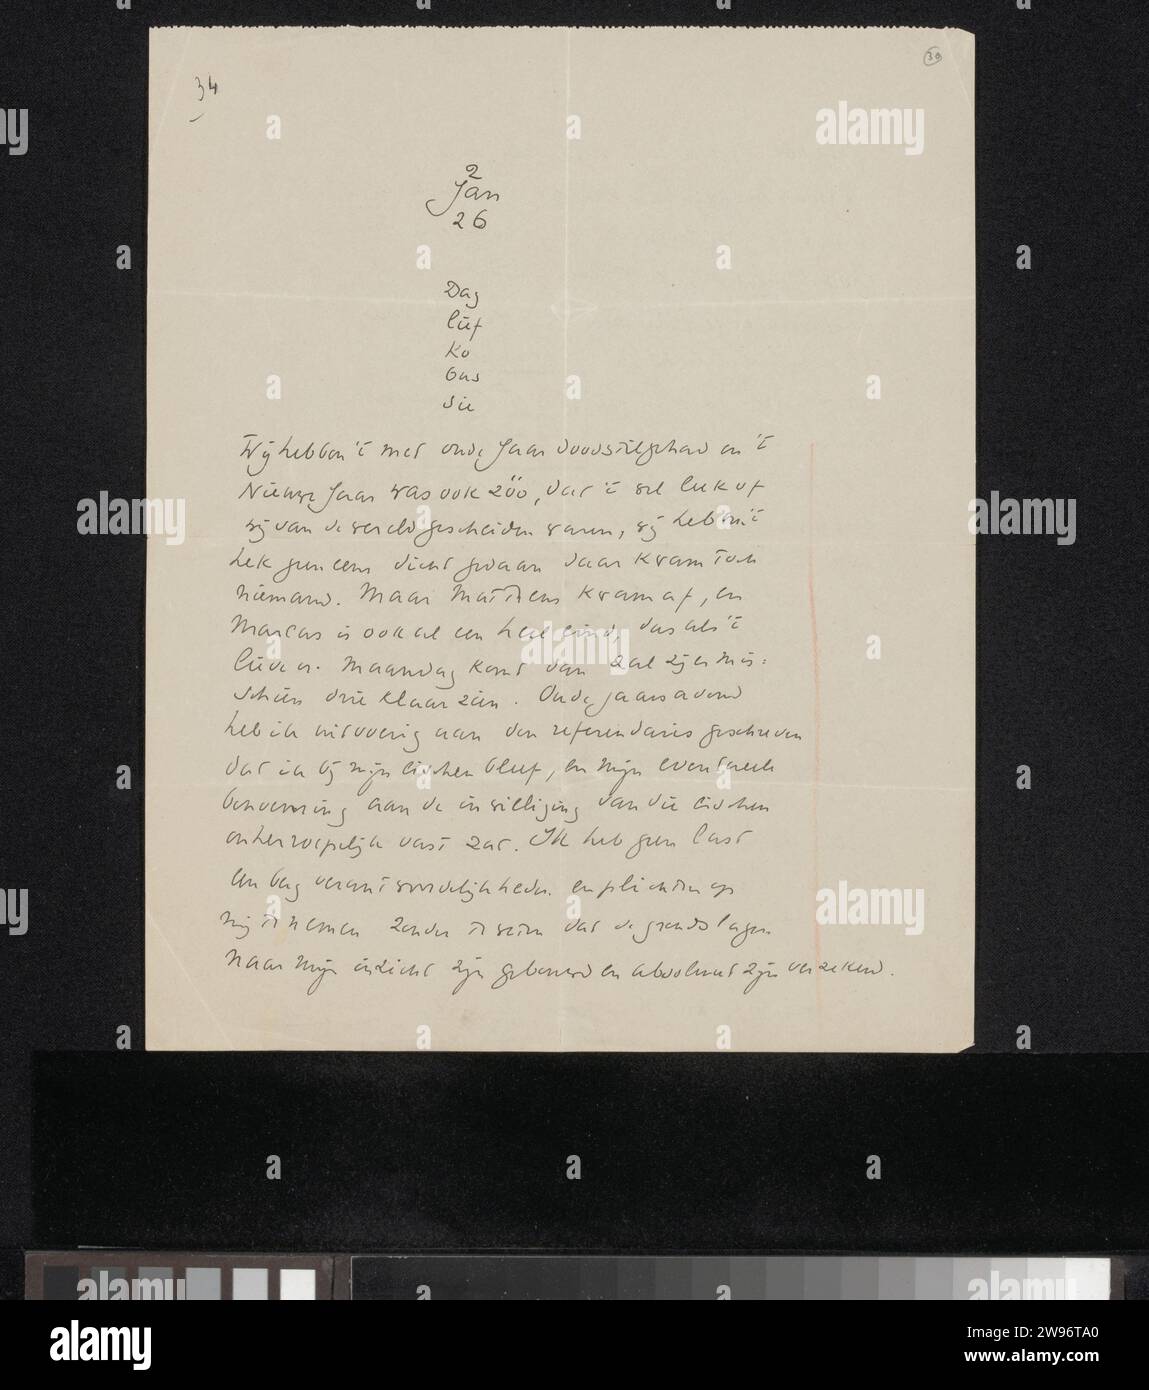 34
30
2
Jan
26
Dag
lief
Ko
bus
sie
Wij hebben 't met oude Jaar doodstil gehad en 't
Nieuwe Jaar was ook zóó, dat 't wel leek of
wij van de wereld gescheiden waren, wij hebben 't
hek geen eens dicht gedaan daar kwam toch
niemand. Maar Matthens kwam af, en
Marcus is ook al een heel eind, dus als 't
lieve n. Maandag komt dan zal zijer mis-
schien drie klaar zien. Oude jaarsavond
heb ik uitvoerig aan den referendaris geschreven
dat ik bij mijn eischen bleef, en mijn eventueele
benoeming aan de inwilliging van die eischen
onherroepelijk vast zat. Ik heb geen lust
een berg verantwoordelijkheden en plichten op
mij te nemen zonder te weten dat de grondslagen
naar mijn inzicht zijn gebouwd en absoluut zijn verzekerd.
alamy
Image ID: 2W96TA0
www.alamy.com